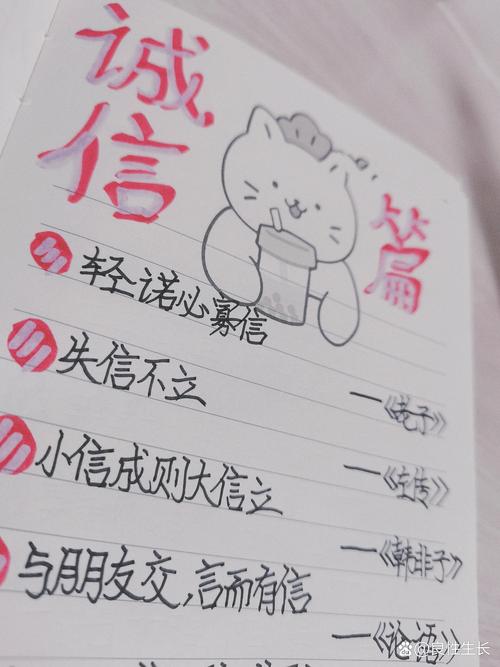 诚信篇
轻诺必寡信
失信不立
——《老子》
——《左传》
小信成则大信立
——《韩非子》
与朋友交,言而有信
——《论语》
@良性生长